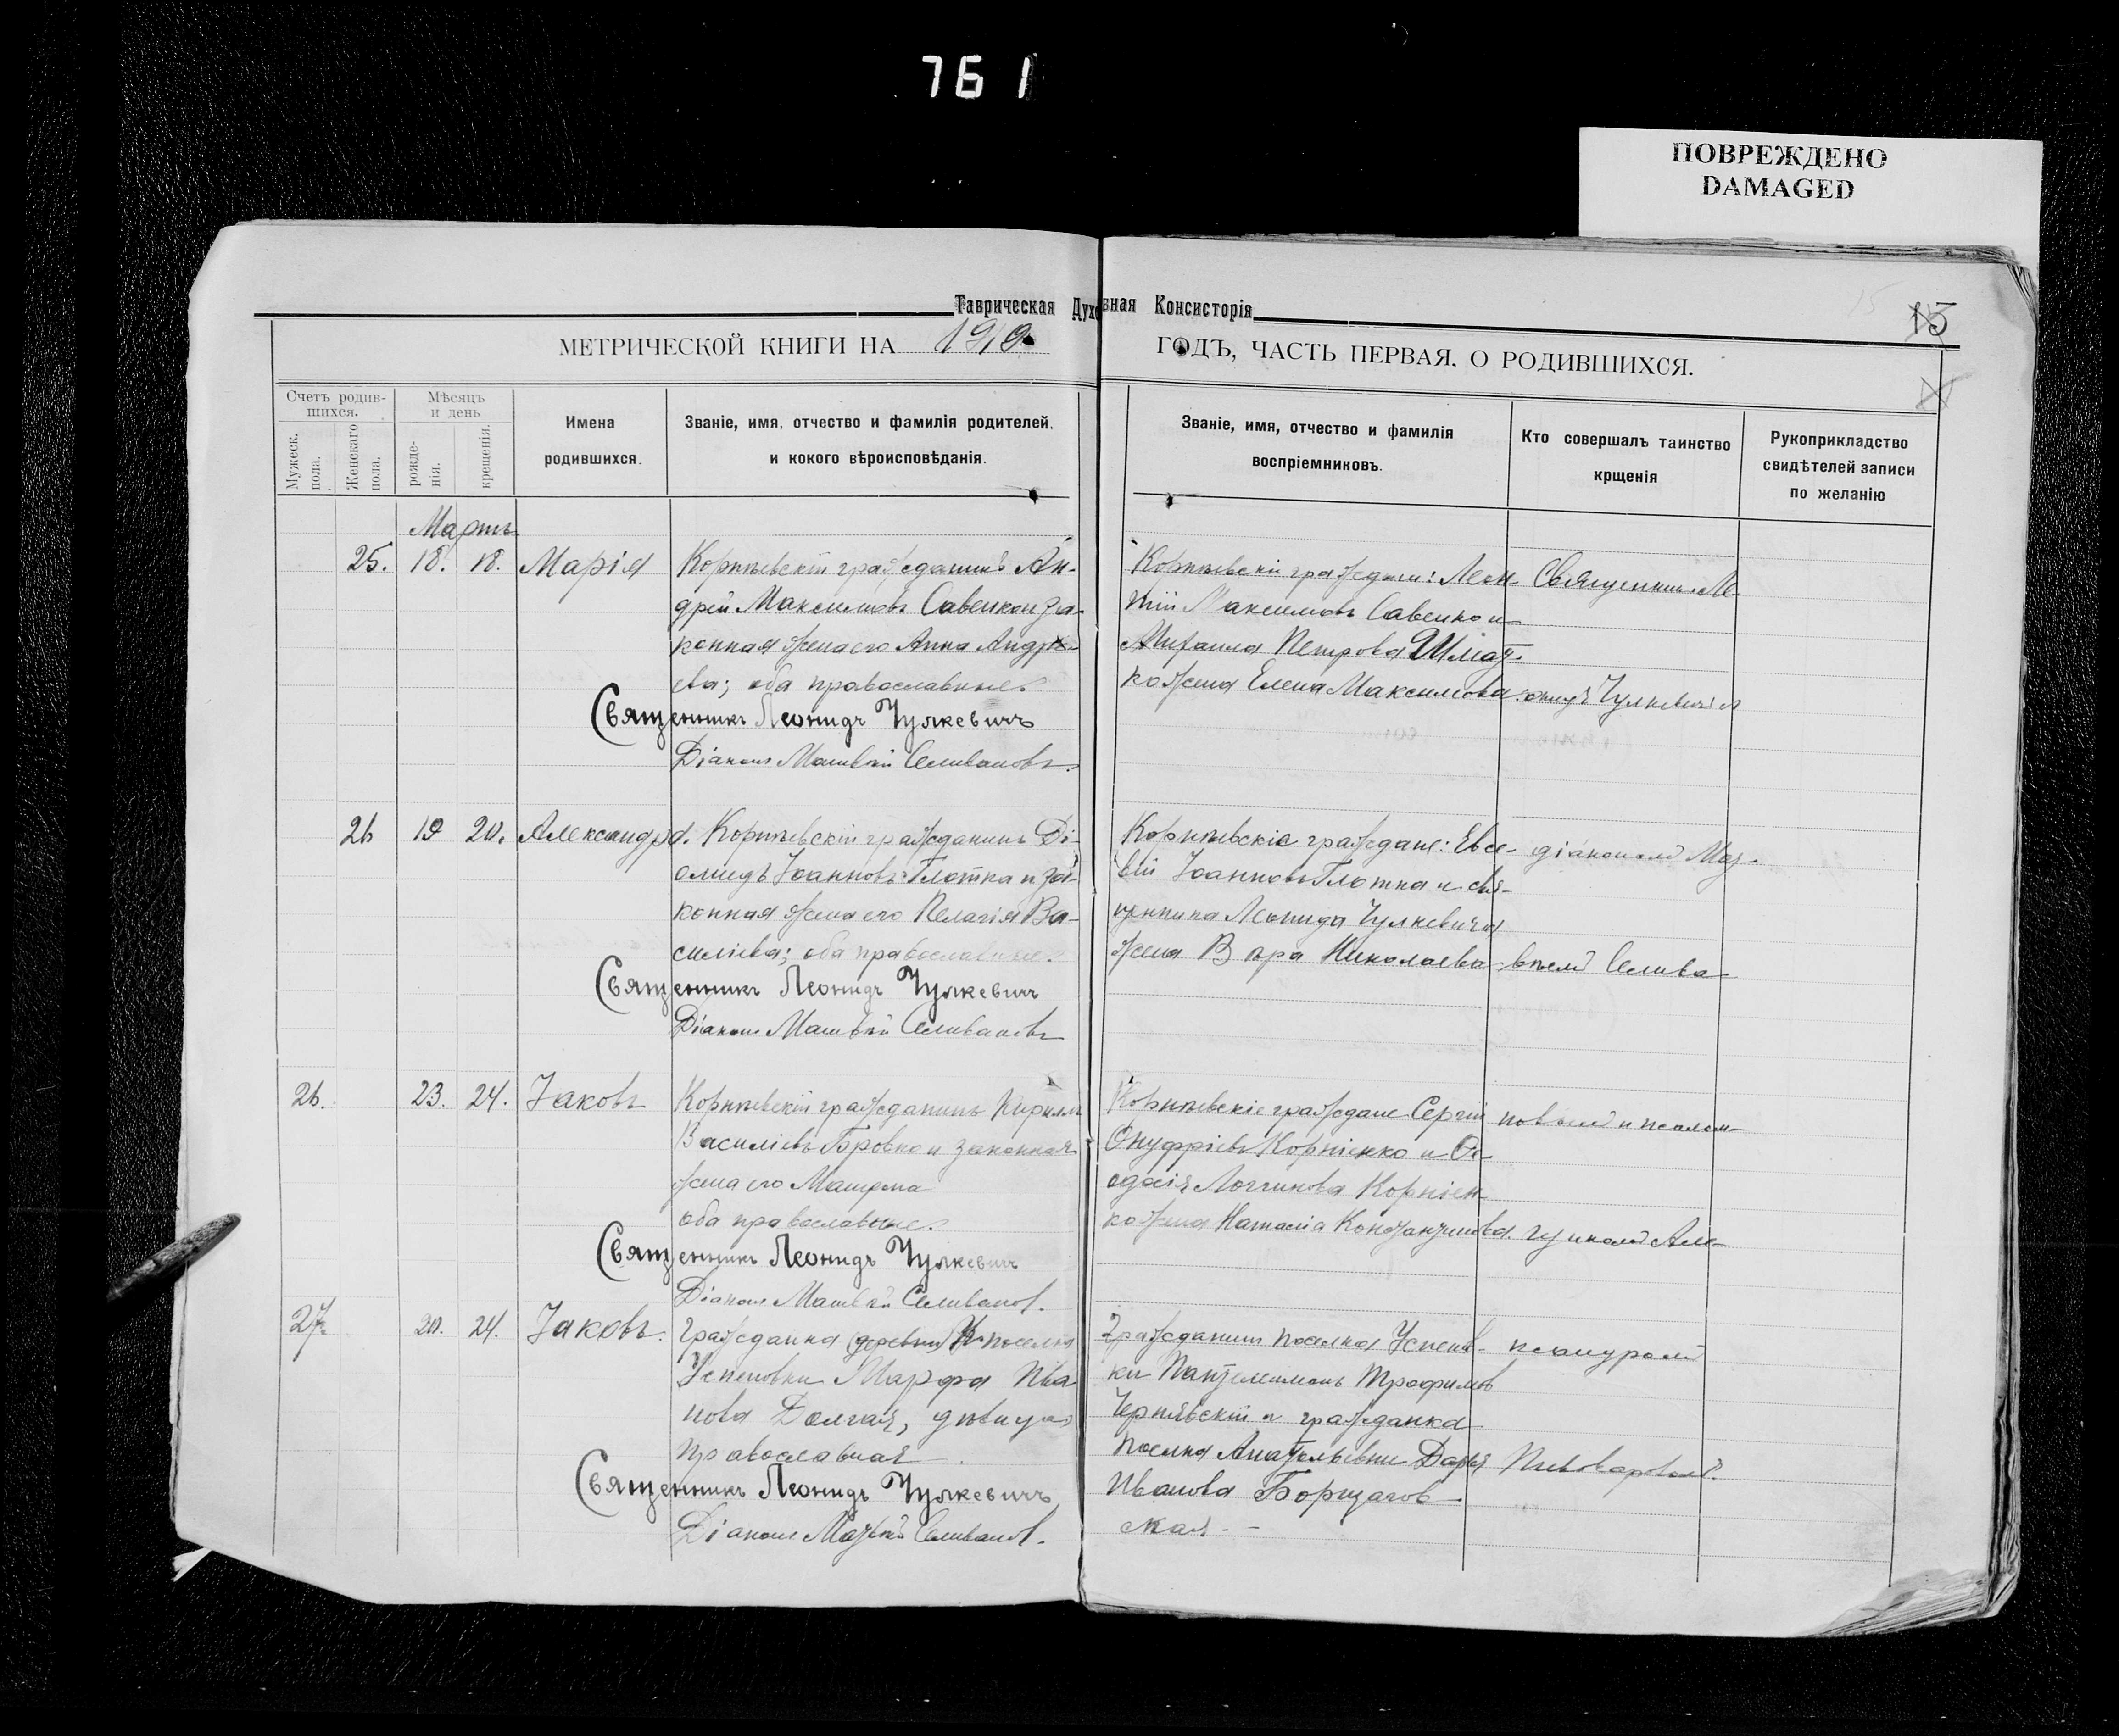 761
ПОВРЕЖДЕНО
DAMAGED
Таврическая Духовная Консисторія
15
МЕТРИЧЕСКОЙ КНИГИ НА 1919 ГОДЪ, ЧАСТЬ ПЕРВАЯ, О РОДИВШИХСЯ.
Счетъ родив-
шихся.
Мужеск.
пола.
Женскаго
пола.
Мѣсяцъ
и день
рожде-
нія.
крещенія.
Имена
родившихся.
Званіе, имя, отчество и фамилія родителей,
и кокого вѣроисповѣданія.
Званіе, имя, отчество и фамилія
воспріемниковъ.
Кто совершалъ таинство
крщенія
Рукоприкладство
свидѣтелей записи
по желанію
Мартъ
25. 18. 18. Марія
Корнѣевскій гражданинъ Ан-
дрей Максимовъ Савенко и за-
конная жена его Анна Андрѣ-
ева; оба православные.
Священникъ Леонидъ Чулкевичъ
Діаконъ Матвѣй Селивановъ.
Корнѣевскіе граждане: Леон-
тій Максимовъ Савенко и
Михаила Петрова
жена Елена Максимова.
Священникъ Ле-
онидъ Чулкевичъ
26 19 20. Александра.
Корнѣевскій гражданинъ Ді-
омидъ Іоанновъ Глотка и за-
конная жена его Пелагія Ва-
силіева; оба православные.
Священникъ Леонидъ Чулкевичъ
Діаконъ Матвѣй Селивановъ
Корнѣевскіе граждане: Евсе-
вій Іоанновъ Глотка и свя-
щенника Леонида Чулкевича
жена Вѣра Николаева
діакономъ Мат-
вѣемъ Селива-
26. 23. 24. Іаковъ
Корнѣевскій гражданинъ Кириллъ
Василіевъ Бровко и законная
жена его Матрона
оба православные.
Священникъ Леонидъ Чулкевичъ
Діаконъ Матвѣй Селиванов.
Корнѣевскіе граждане Сергій
Онуфріевъ Корніенко и Ѳе-
одосія Логгинова Корніен-
ко жена Наталія
новымъ и псалом-
щикомъ Але-
27. 20. 24. Іаковъ.
Гражданка (деревни) поселка
Успеновки Марфа Ива-
нова Долгая, дѣвица
православная.
Священникъ Леонидъ Чулкевичъ
Діаконъ Матвѣй Селиванов.
Гражданинъ поселка Успенов-
ки Пантелеимонъ Трофимовъ
Чернявскій и гражданка
поселка Анатольевки Дарья
Иванова Борщагов-
ская.
ксандромъ
Пивоваровымъ.